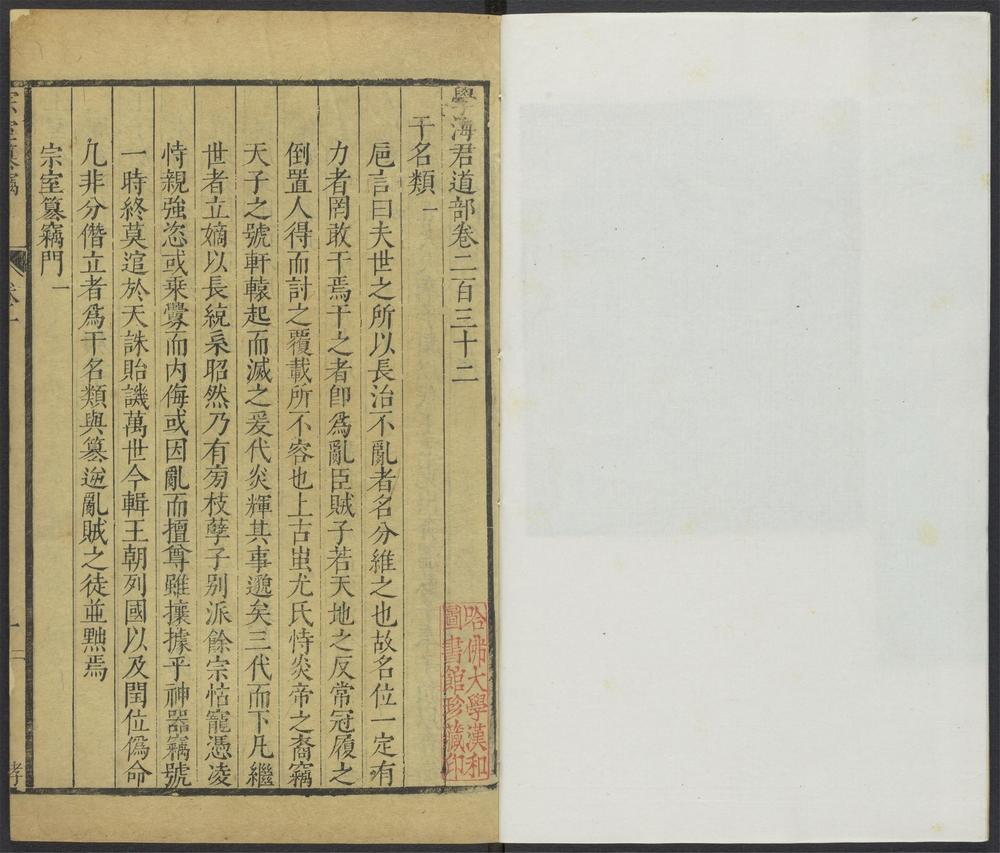 學海君道部卷二百三十二
干名類一
巵言曰夫世之所以長治不亂者名分維之也故名位一定有
力者罔敢干焉干之者卽爲亂臣賊子若天地之反常冠履之
倒置人得而討之覆載所不容也上古蚩尤氏恃炎帝之裔竊
天子之號軒轅起而滅之爰代炎輝其事邈矣三代而下凡繼
世者立嫡以長統系昭然乃有旁枝孽子別派餘宗怙寵憑凌
恃親強恣或乘釁而内侮或因亂而擅尊雖攘據乎神器竊號
一時終莫逭於天誅貽譏萬世今輯王朝列國以及閏位僞命
凡非分僭立者爲干名類與篡逆亂賊之徒並黜焉
宗室篡竊門一
宗室篡竊
一
哈佛大學漢和
圖書館珍藏印